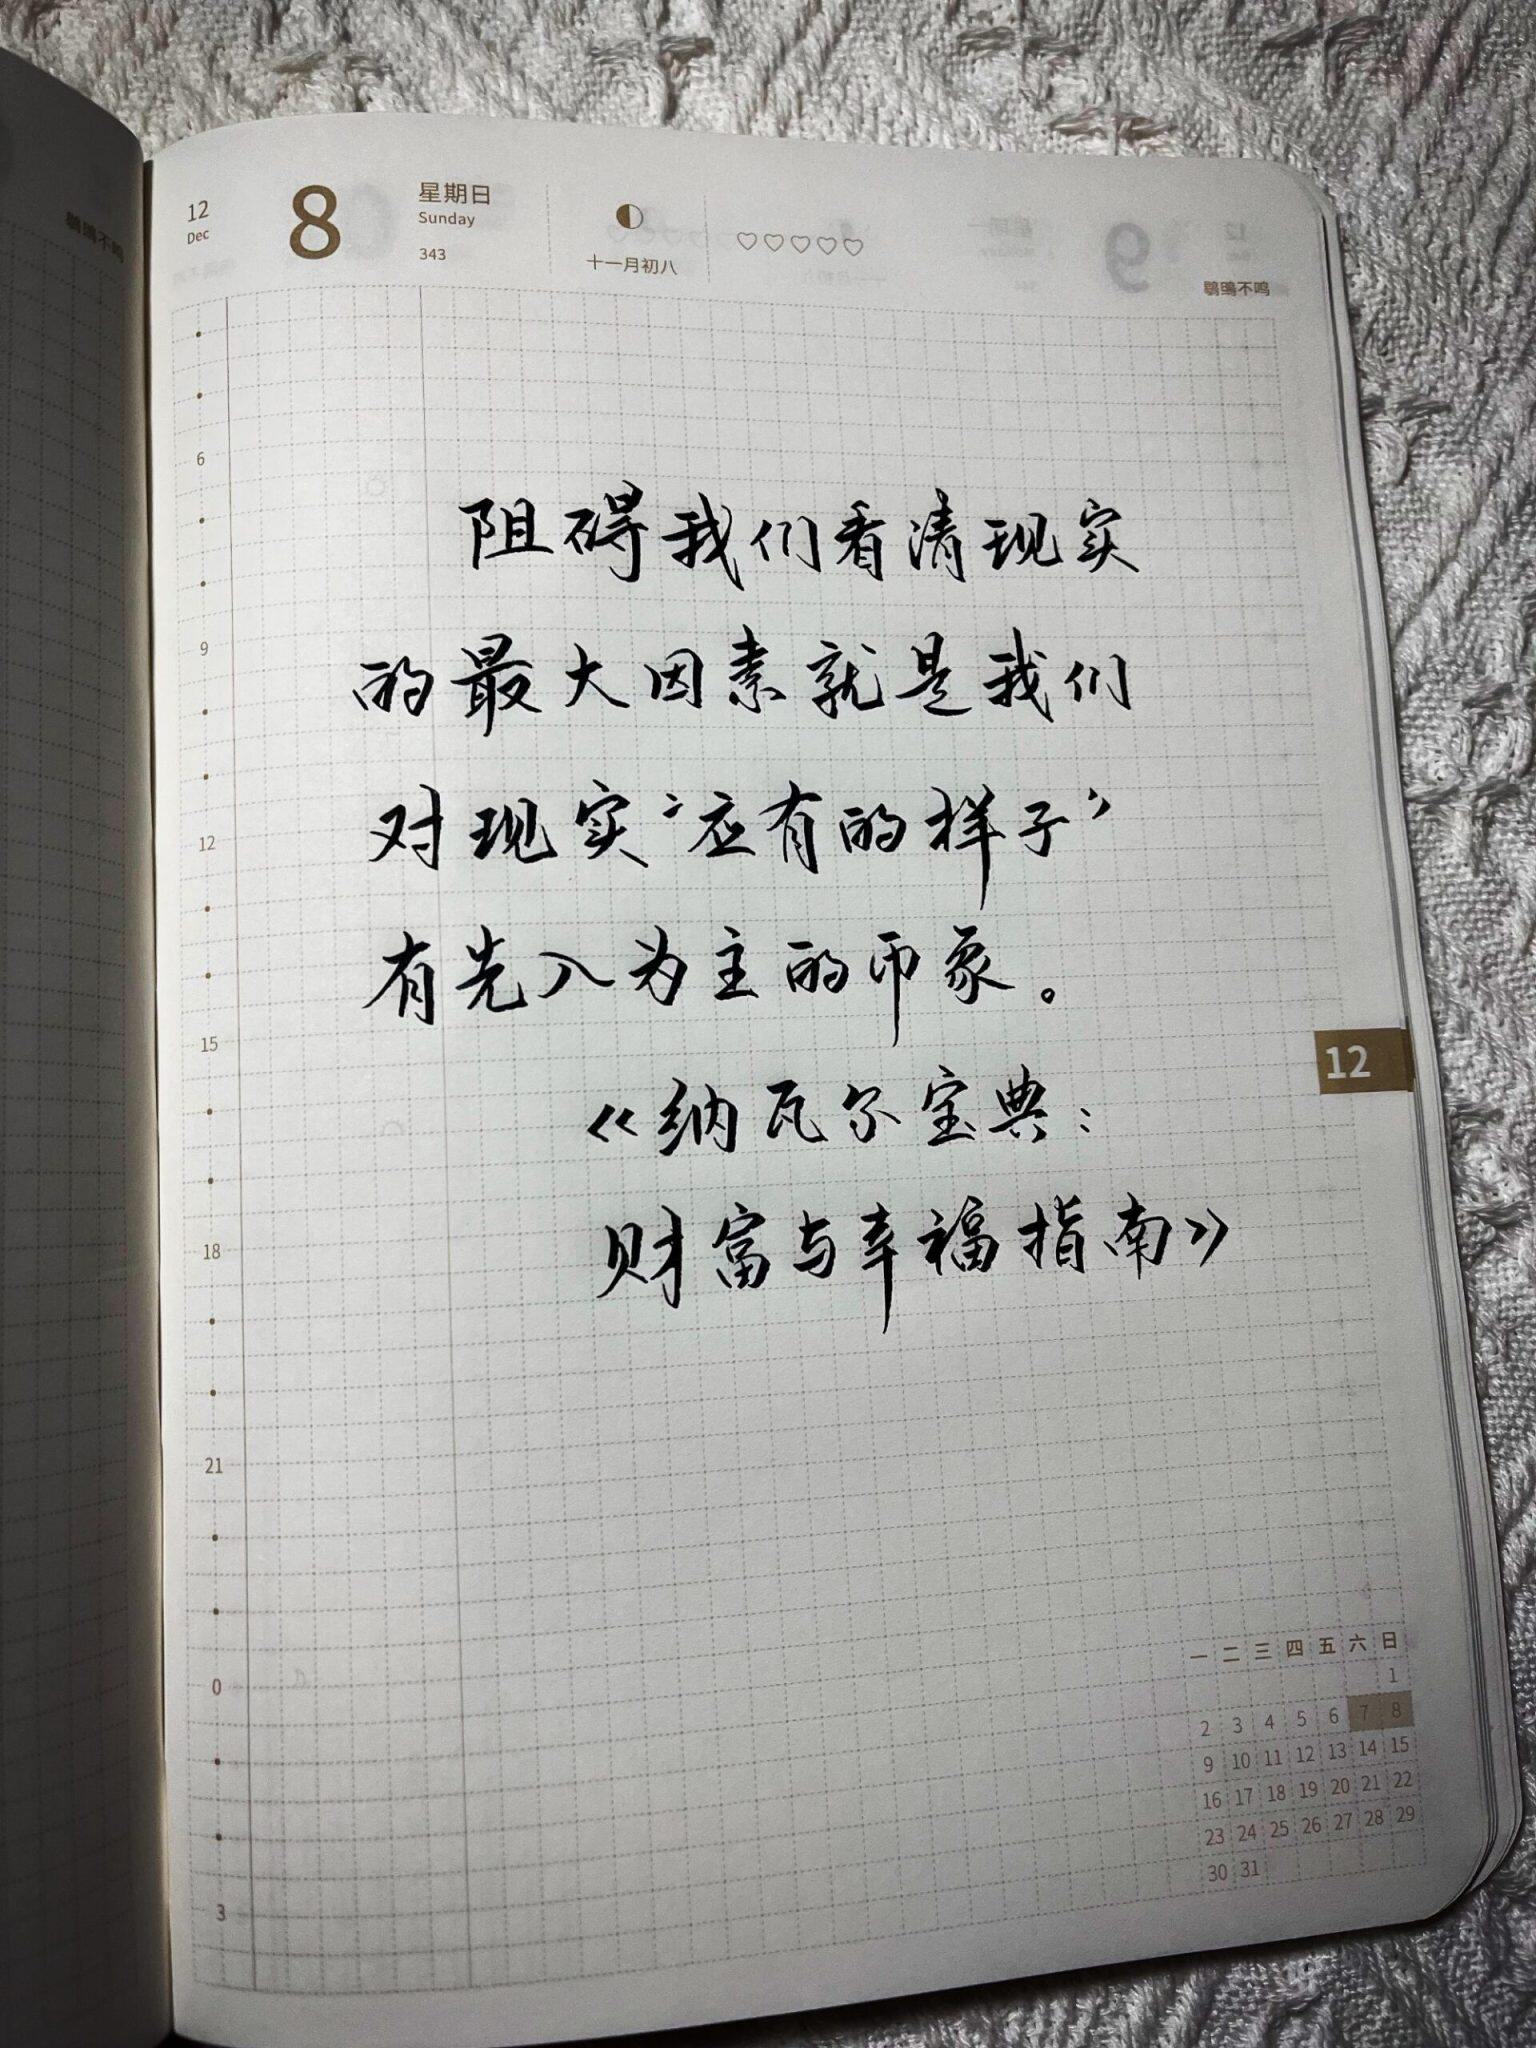 鹖鴠不鸣
12
Dec
8
星期日
Sunday
343
十一月初八
鹖鴠不鸣
6
9
12
15
18
21
0
3
阻碍我们看清现实
的最大因素就是我们
对现实“应有的样子”
有先入为主的印象。
《纳瓦尔宝典：
财富与幸福指南》
12
一 二 三 四 五 六 日
1
2 3 4 5 6 7 8
9 10 11 12 13 14 15
16 17 18 19 20 21 22
23 24 25 26 27 28 29
30 31